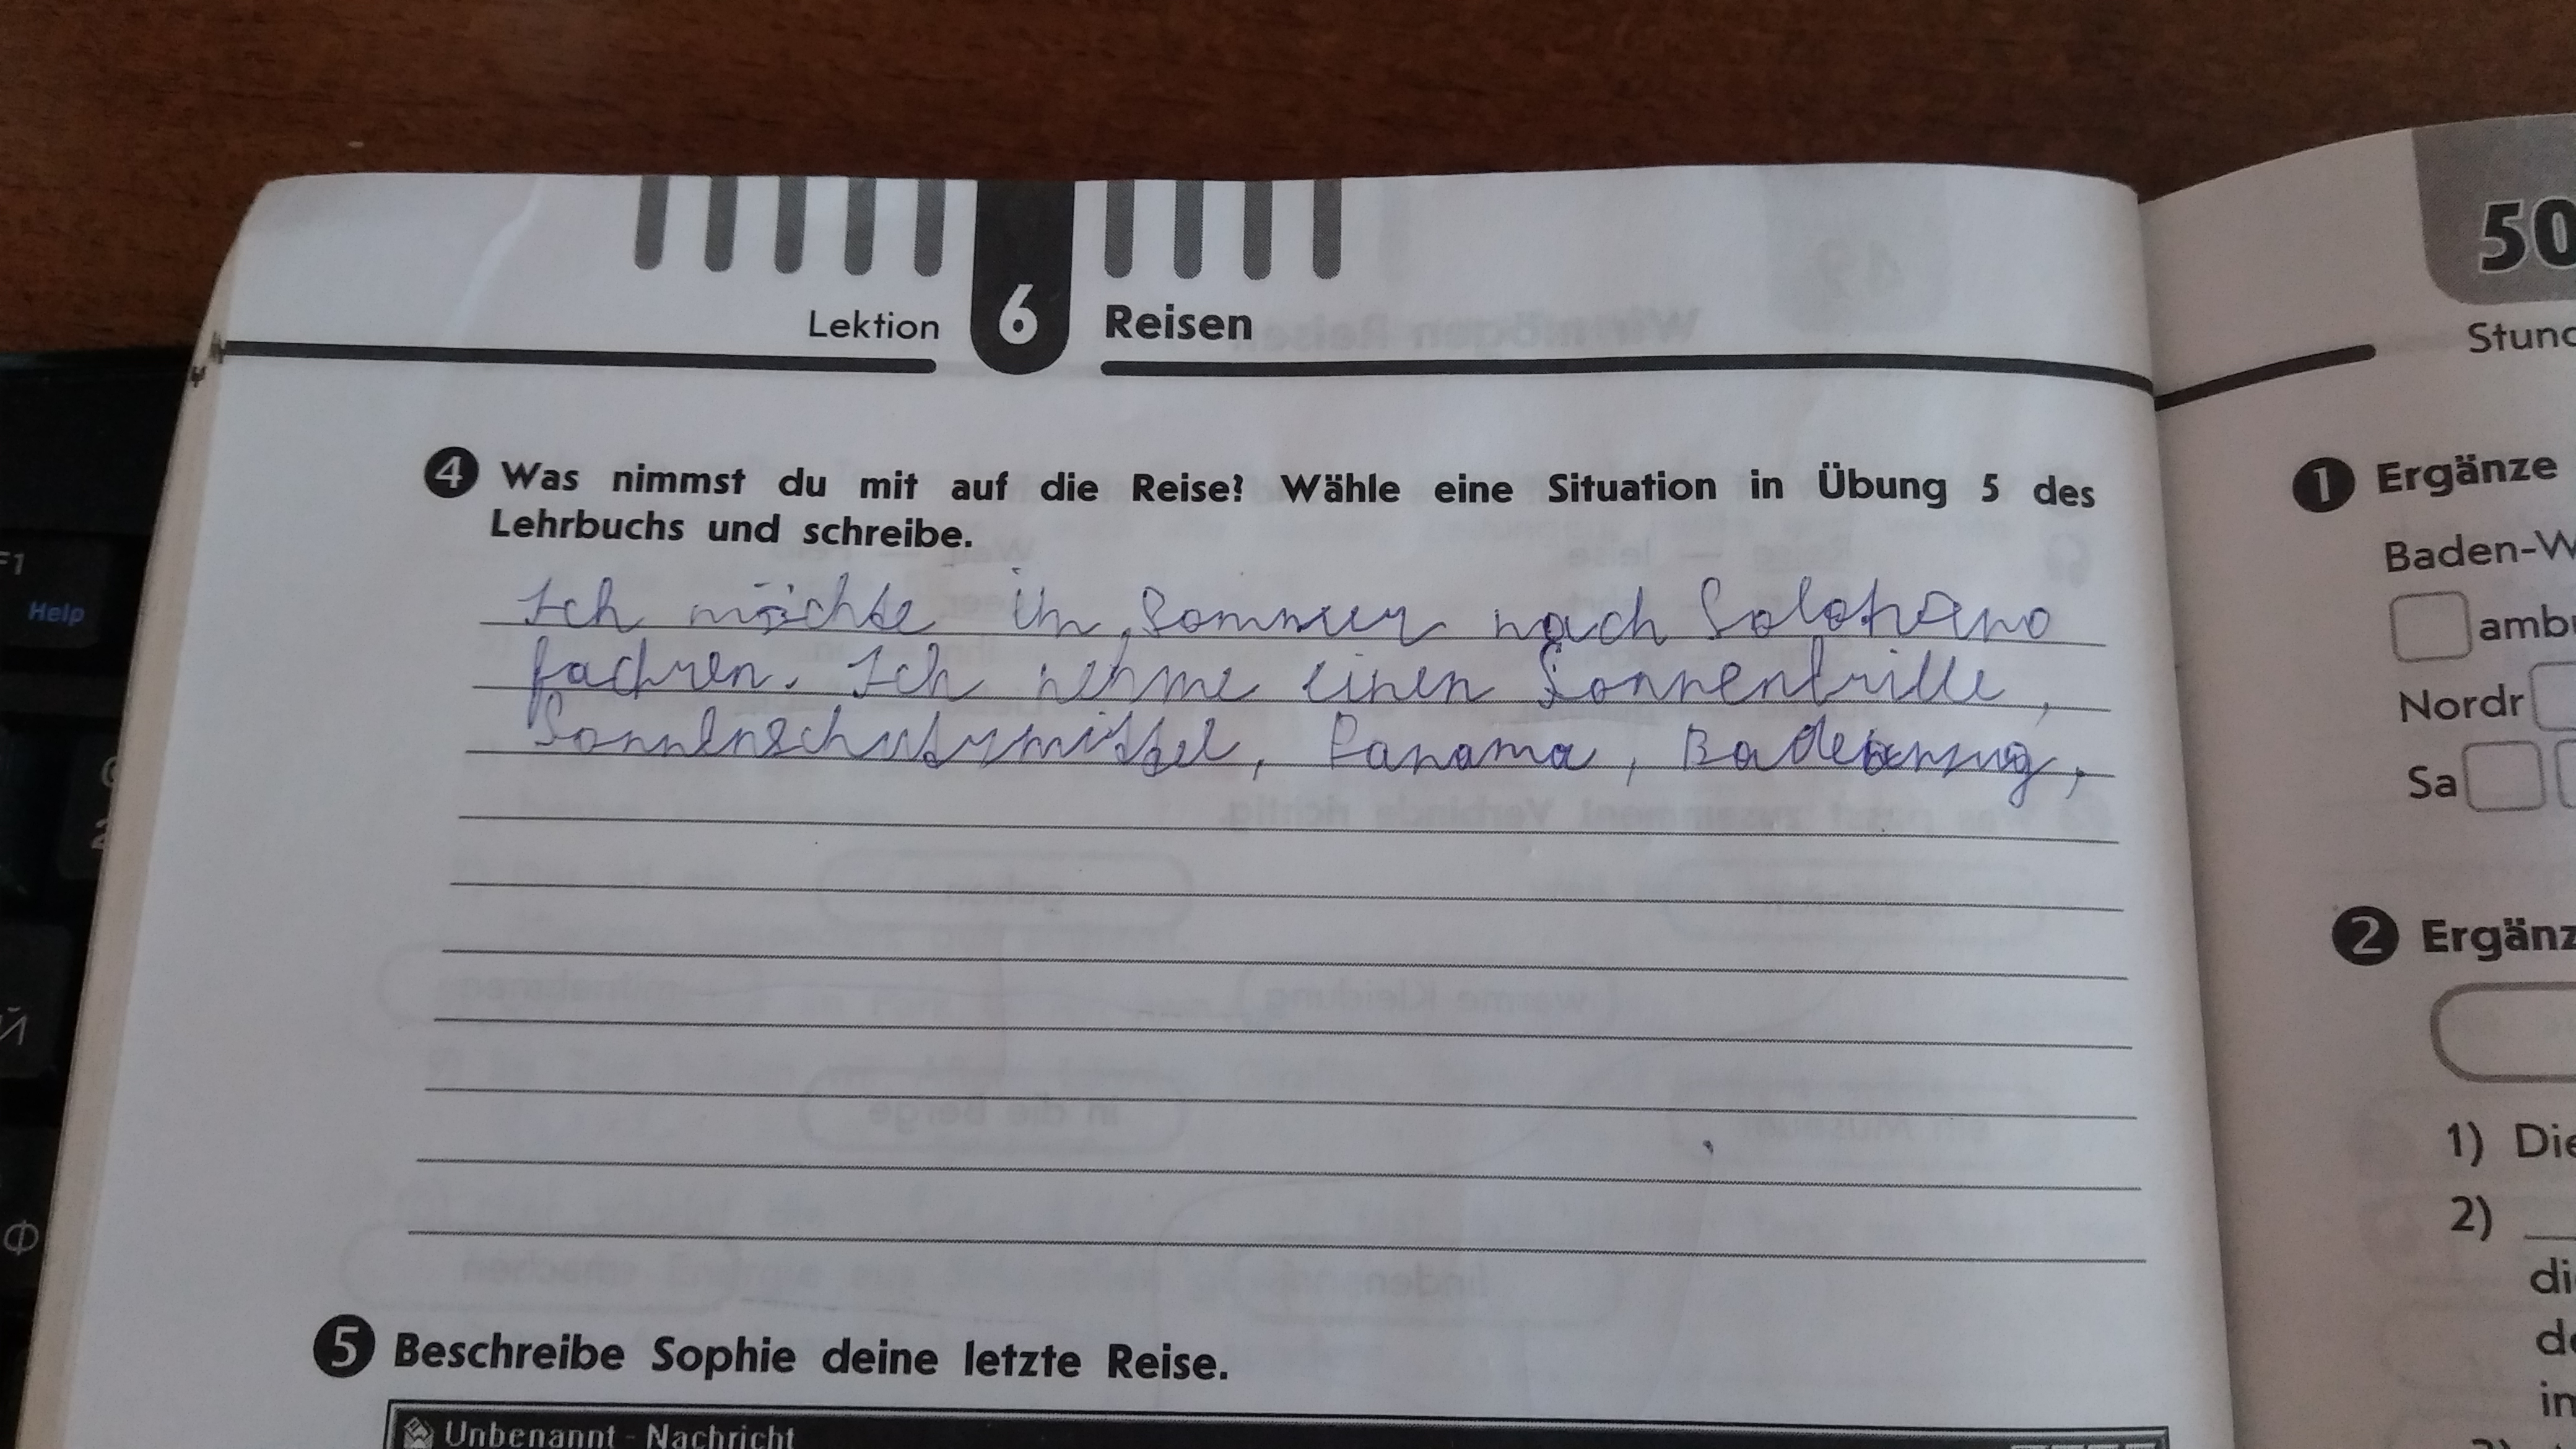 50
Lektion 6 Reisen
Stund
4 Was nimmst du mit auf die Reise? Wähle eine Situation in Übung 5 des
Lehrbuchs und schreibe.
Ich möchte im Sommer nach
fachren. Ich nehme einen Sonnenbrille,
Sonnenschutzmittel, Panama, Badeanzug,
5 Beschreibe Sophie deine letzte Reise.
Unbenannt - Nachricht
1 Ergänze
Baden-W
ambu
Nordr
Sa
2 Ergänz
1) Die
2)
di
de
in
F1
Help
Й
Ф